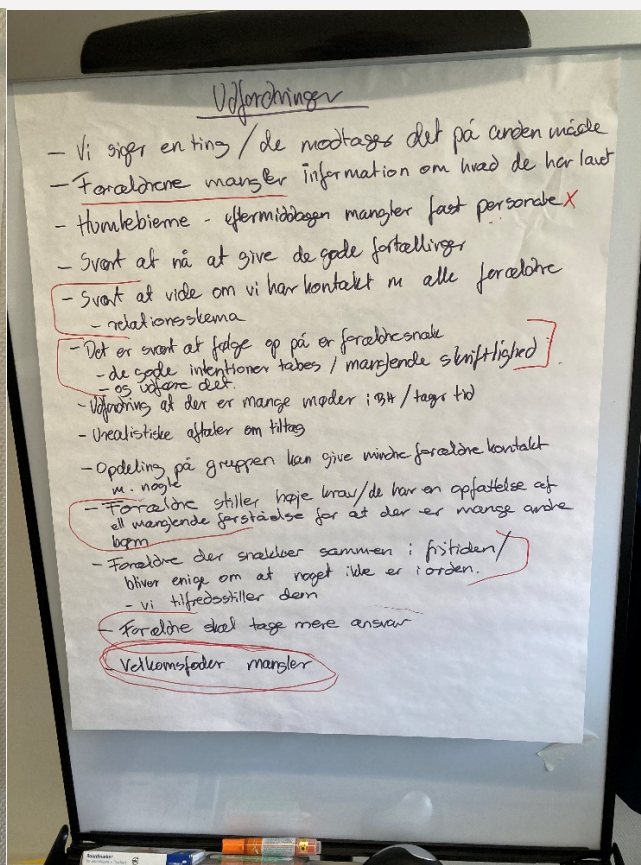 Udfordringer
- Vi siger en ting / de modtages det på anden måde
- Forældrene mangler information om hvad de har lavet
- Humlebierne - eftermiddagen mangler fast personale X
- Svært at nå at give de gode fortællinger
- Svært at vide om vi har kontakt m alle forældre
- relationsskema
- Det er svært at følge op på er forældresnak
- de gode intentioner tabes / manglende skriftlighed
- og udføre det.
- Udfordring at der er mange møder i BH / tager tid
- Urealistiske aftaler om tiltag
- Opdeling på gruppen kan give mindre forældre kontakt
m. nogle
- Forældre stiller høje krav / de har en opfattelse af
ell manglende forståelse for at der er mange andre
børn
- Forældre der snakker sammen i fritiden /
bliver enige om at noget ikke er i orden.
- vi tilfredsstiller dem
- Forældre skal tage mere ansvar
Velkomsfoder mangler